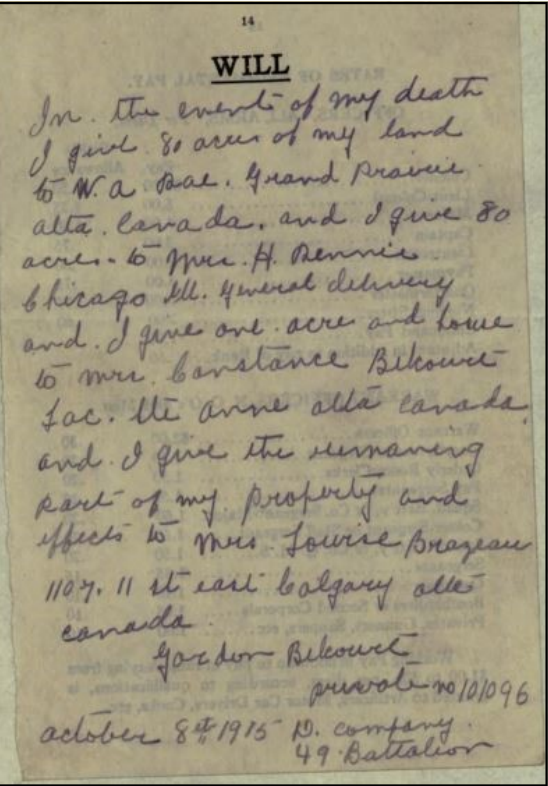 14
WILL
In. the event of my death
I give 80 acres of my land
to W. a Rae. Grand Prairie
alta. Canada. and I give 80
acres. to Mrs. H. Rennie
Chicago Ill. General delivery
and. I give one. acre and house
to mrs. Constance Belcourt
Lac. Ste anne alta canada
and. I give the remaning
part of my property and
effects to Mrs. Louise Brazeau
1107. 11 st east Calgary alta
canada.
Gordon Belcourt
private no 101096
october 8th 1915 D. company.
49. Battalion